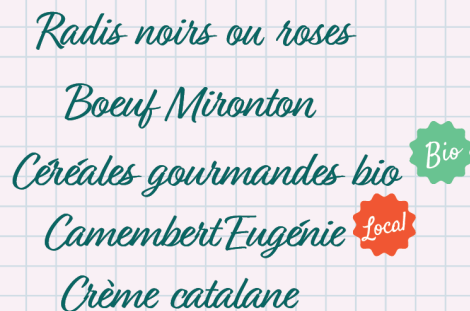 Radis noirs ou roses
Boeuf Mironton
Céréales gourmandes bio
Bio
Camembert Eugénie
Local
Crème catalane